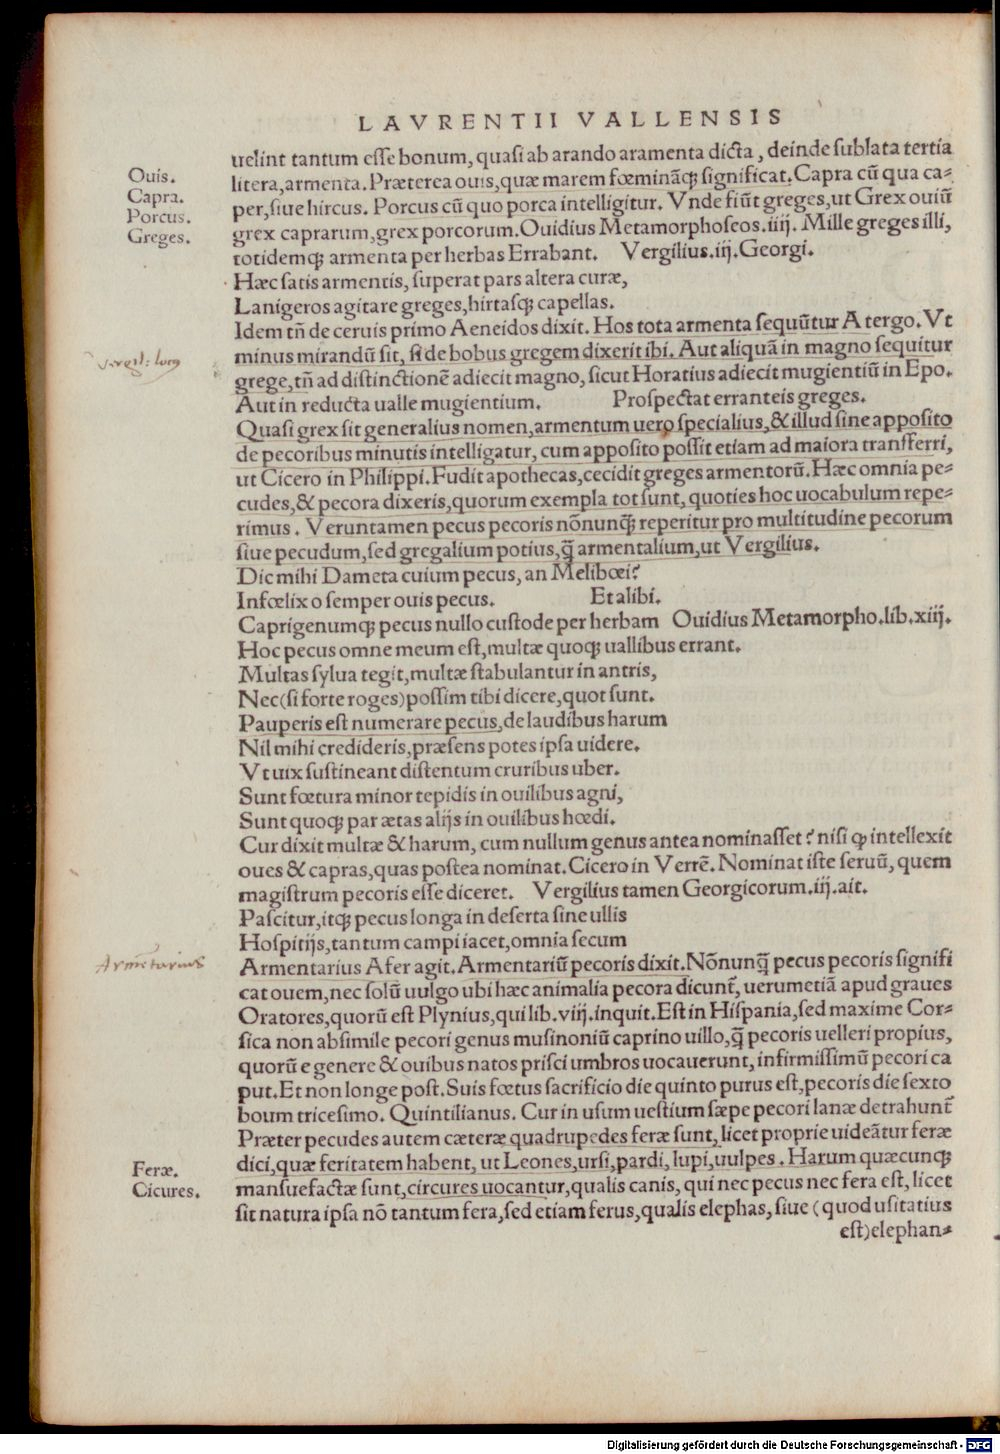 LAVRENTII VALLENSIS
uelint tantum esse bonum, quasi ab arando aramenta dicta, deinde sublata tertia
Ouis.
litera, armenta. Præterea ouis, quæ marem fœminãq; significat. Capra cũ qua ca-
Capra.
per, siue hircus. Porcus cũ quo porca intelligitur. Vnde fiũt greges, ut Grex ouiũ
Porcus.
Greges.
grex caprarum, grex porcorum. Ouidius Metamorphoseos. iiij. Mille greges illi,
totidemq; armenta per herbas Errabant. Vergilius. iij. Georgi.
Hæc satis armentis, superat pars altera curæ,
Lanigeros agitare greges, hirtasq; capellas.
Idem tñ de ceruis primo Aeneidos dixit. Hos tota armenta sequũtur A tergo. Vt
Vergil: locus
minus mirandũ sit, si de bobus gregem dixerit ibi. Aut aliquã in magno sequitur
grege, tñ ad distinctionẽ adiecit magno, sicut Horatius adiecit mugientiũ in Epo.
Aut in reducta ualle mugientium. Prospectat erranteis greges.
Quasi grex sit generalius nomen, armentum uero specialius, & illud sine apposito
de pecoribus minutis intelligatur, cum apposito possit etiam ad maiora transferri,
ut Cicero in Philippi. Fudit apothecas, cecidit greges armentorũ. Hæc omnia pe-
cudes, & pecora dixeris, quorum exempla tot sunt, quoties hoc uocabulum repe-
rimus. Veruntamen pecus pecoris nõnunq̃ reperitur pro multitudine pecorum
siue pecudum, sed gregalium potius, q̃ armentalium, ut Vergilius.
Dic mihi Dameta cuium pecus, an Melibœi?
Infœlix o semper ouis pecus. Et alibi.
Caprigenumq; pecus nullo custode per herbam Ouidius Metamorpho. lib. xiij.
Hoc pecus omne meum est, multæ quoq; uallibus errant.
Multas sylua tegit, multæ stabulantur in antris,
Nec (si forte roges) possim tibi dicere, quot sunt.
Pauperis est numerare pecus, de laudibus harum
Nil mihi credideris, præsens potes ipsa uidere.
Vt uix sustineant distentum cruribus uber.
Sunt fœtura minor tepidis in ouilibus agni,
Sunt quoq; par ætas alijs in ouilibus hœdi.
Cur dixit multæ & harum, cum nullum genus antea nominasset? nisi ꝙ intellexit
oues & capras, quas postea nominat. Cicero in Verrẽ. Nominat iste seruũ, quem
magistrum pecoris esse diceret. Vergilius tamen Georgicorum. iij. ait.
Pascitur, itq; pecus longa in deserta sine ullis
Hospitijs, tantum campi iacet, omnia secum
Armẽtarius
Armentarius Afer agit. Armentariũ pecoris dixit. Nõnunq̃ pecus pecoris signifi
cat ouem, nec solũ uulgo ubi hæc animalia pecora dicunt̃, uerumetiã apud graues
Oratores, quorũ est Plynius, qui lib. viij. inquit. Est in Hispania, sed maxime Cor-
sica non absimile pecori genus musinoniũ caprino uillo, q̃ pecoris uelleri propius,
quorũ e genere & ouibus natos prisci umbros uocauerunt, infirmissimũ pecori ca
put. Et non longe post. Suis fœtus sacrificio die quinto purus est, pecoris die sexto
boum tricesimo. Quintilianus. Cur in usum uestium sæpe pecori lanæ detrahunt̃
Præter pecudes autem cæteræ quadrupedes feræ sunt, licet proprie uideãtur feræ
Feræ.
dici, quæ feritatem habent, ut Leones, ursi, pardi, lupi, uulpes. Harum quæcunq;
Cicures.
mansuefactæ sunt, circures uocantur, qualis canis, qui nec pecus nec fera est, licet
sit natura ipsa nõ tantum fera, sed etiam ferus, qualis elephas, siue (quod usitatius
est) elephan-
Digitalisierung gefördert durch die Deutsche Forschungsgemeinschaft - DFG